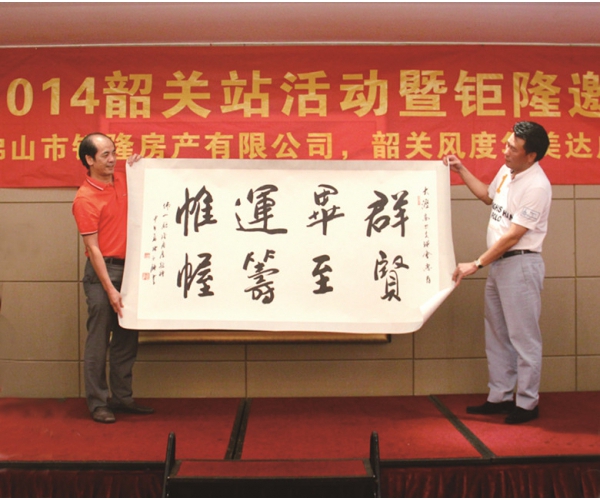 014韶关站活动暨钜隆邀
佛山市钜隆房产有限公司，韶关风度华美达
群賢
畢至
運籌
帷幄